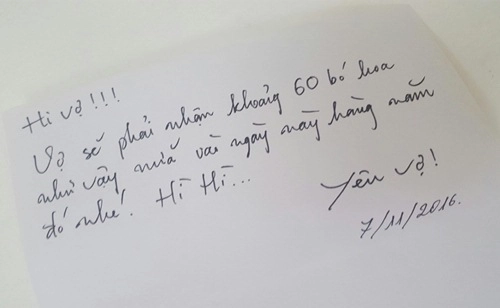 Hi vợ!!!
Vợ sẽ phải nhận khoảng 60 bó hoa
như vậy nữa vài ngày này hàng năm
đó nhé! Hì Hì...
Yêu vợ!
7/11/2016.